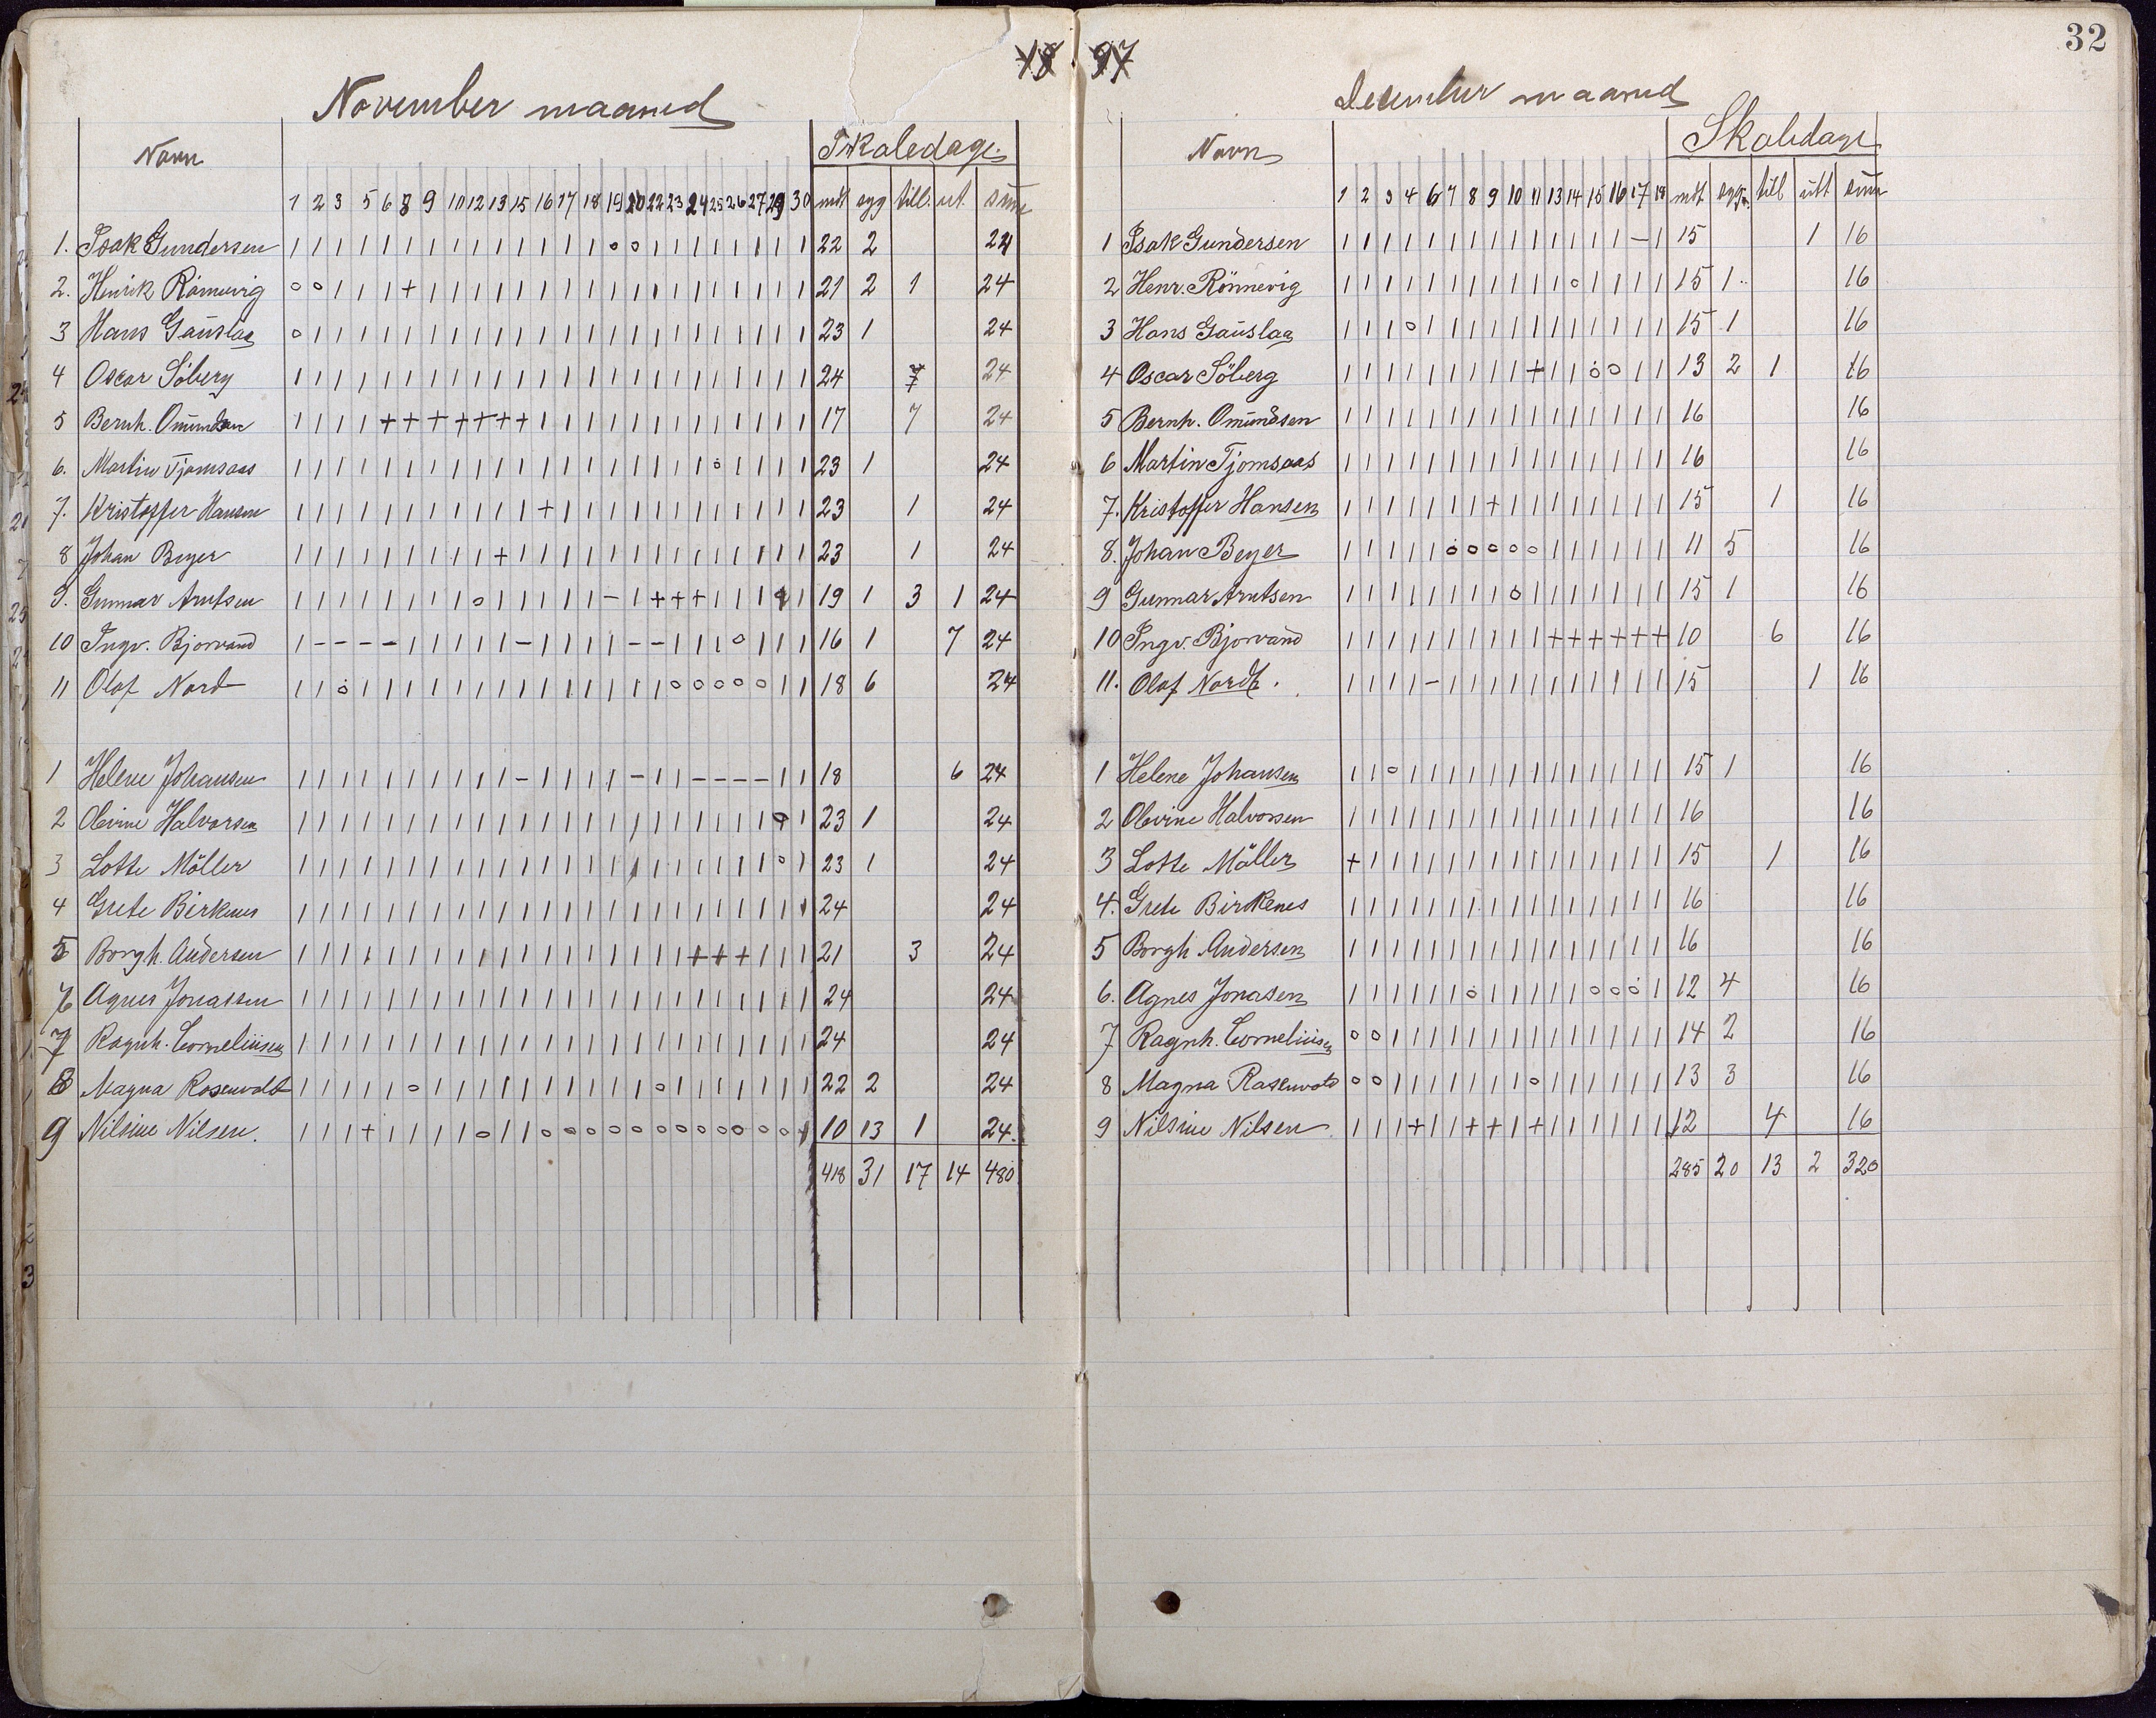 18 97
32
November maaned
Navn
Skoledage.
1 2 3 5 6 8 9 10 12 13 15 16 17 18 19 20 22 23 24 25 26 27 29 30 mdt syg till. ut. sum
1. Isak Gundersen | | | | | | | | | | | | | | o o | | | | | | | | 22 2 24
2. Henrik Rönnevig o o | | | + | | | | | | | | | | | | | | | | | | 21 2 1 24
3 Hans Gauslaa o | | | | | | | | | | | | | | | | | | | | | | | 23 1 24
4 Oscar Söberg | | | | | | | | | | | | | | | | | | | | | | | | 24 24
5 Bernh. Omundsen | | | | + + + + + + + | | | | | | | | | | | | | 17 7 24
6. Martin Tjomsaas | | | | | | | | | | | | | | | | | | | o | | | | 23 1 24
7. Kristoffer Hansen | | | | | | | | | | | + | | | | | | | | | | | | 23 1 24
8 Johan Beyer | | | | | | | | | + | | | | | | | | | | | | | | 23 1 24
9. Gunnar Arntsen | | | | | | | | o | | | | | - | + + + | | | | | 19 1 3 1 24
10 Ingv. Bjorvand | - - - - | | | | | - | | | | - - | | | o | | | 16 1 7 24
11 Olaf Nord | | o | | | | | | | | | | | | | | o o o o o | | 18 6 24
1 Helene Johansen | | | | | | | | | | - | | | | - | | - - - - | | 18 6 24
2 Olevine Halvorsen | | | | | | | | | | | | | | | | | | | | | | o | 23 1 24
3 Lotte Möller | | | | | | | | | | | | | | | | | | | | | | o | 23 1 24
4 Grete Birkenes | | | | | | | | | | | | | | | | | | | | | | | | 24 24
5 Borgh. Andersen | | | | | | | | | | | | | | | | | | + + + | | | 21 3 24
6 Agnes Jonassen | | | | | | | | | | | | | | | | | | | | | | | | 24 24
7 Ragnh. Corneliusen | | | | | | | | | | | | | | | | | | | | | | | | 24 24
8 Magna Rosenvold | | | | | o | | | | | | | | | | o | | | | | | | 22 2 24
9 Nilsine Nilsen. | | | + | | | | o | | o o o o o o o o o o o o | 10 13 1 24.
418 31 17 14 480
December maaned
Navn
Skoledage
1 2 3 4 6 7 8 9 10 11 13 14 15 16 17 18 mdt sygd. till utt sum
1 Isak Gundersen | | | | | | | | | | | | | | - | 15 1 16
2 Henr. Rönnevig | | | | | | | | | | | o | | | | 15 1 16
3 Hans Gauslaa | | | o | | | | | | | | | | | | 15 1 16
4 Oscar Söberg | | | | | | | | | + | | o o | | 13 2 1 16
5 Bernh. Omundsen | | | | | | | | | | | | | | | | 16 16
6 Martin Tjomsaas | | | | | | | | | | | | | | | | 16 16
7. Kristoffer Hansen | | | | | | | + | | | | | | | | 15 1 16
8. Johan Beyer | | | | | o o o o o | | | | | | 11 5 16
9 Gunnar Arntsen | | | | | | | | o | | | | | | | 15 1 16
10 Ingv. Bjorvand | | | | | | | | | | + + + + + + 10 6 16
11. Olaf Nord. | | | | - | | | | | | | | | | | 15 1 16
1 Helene Johansen | | o | | | | | | | | | | | | | 15 1 16
2 Olevine Halvorsen | | | | | | | | | | | | | | | | 16 16
3 Lotte Möller + | | | | | | | | | | | | | | | 15 1 16
4. Grete Birkenes | | | | | | | | | | | | | | | | 16 16
5 Borgh Andersen | | | | | | | | | | | | | | | | 16 16
6. Agnes Jonasen | | | | | | o | | | | | o o o | 12 4 16
7 Ragnh. Corneliusen o o | | | | | | | | | | | | | | 14 2 16
8 Magna Rosenvold o o | | | | | | | o | | | | | | 13 3 16
9 Nilsine Nilsen. | | | + | | + + | + | | | | | | 12 4 16
285 20 13 2 320